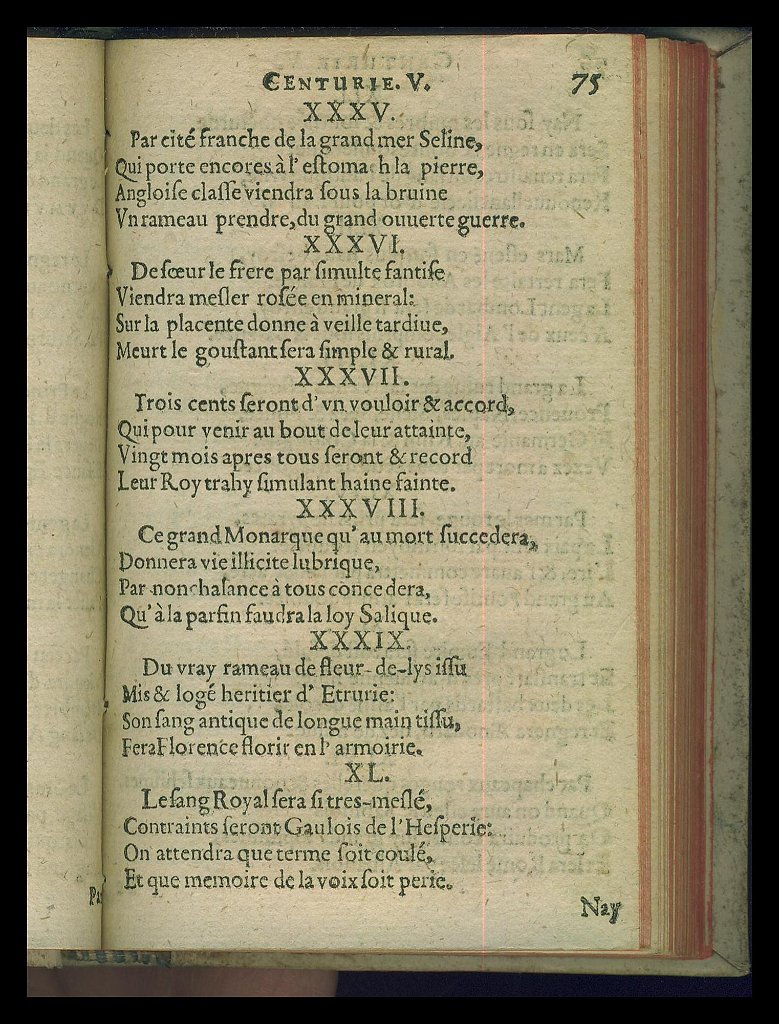 CENTURIE. V. 75
XXXV.
Par cité franche de la grand mer Seline,
Qui porte encores à l' estomach la pierre,
Angloise classe viendra sous la bruine
Vn rameau prendre, du grand ouuerte guerre.
XXXVI.
De sœur le frere par simulte fantise
Viendra mesler rosée en mineral:
Sur la placente donne à veille tardiue,
Meurt le goustant sera simple & rural.
XXXVII.
Trois cents seront d' vn vouloir & accord,
Qui pour venir au bout de leur attainte,
Vingt mois apres tous seront & record
Leur Roy trahy simulant haine fainte.
XXXVIII.
Ce grand Monarque qu' au mort succedera,
Donnera vie illicite lubrique,
Par nonchalance à tous concedera,
Qu' à la parfin faudra la loy Salique.
XXXIX.
Du vray rameau de fleur-de-lys issu
Mis & logé heritier d' Etrurie:
Son sang antique de longue main tissu,
Fera Florence florir en l' armoirie.
XL.
Le sang Royal sera si tres-meslé,
Contraints seront Gaulois de l'Hesperie:
On attendra que terme soit coulé,
Et que memoire de la voix soit perie.
Nay